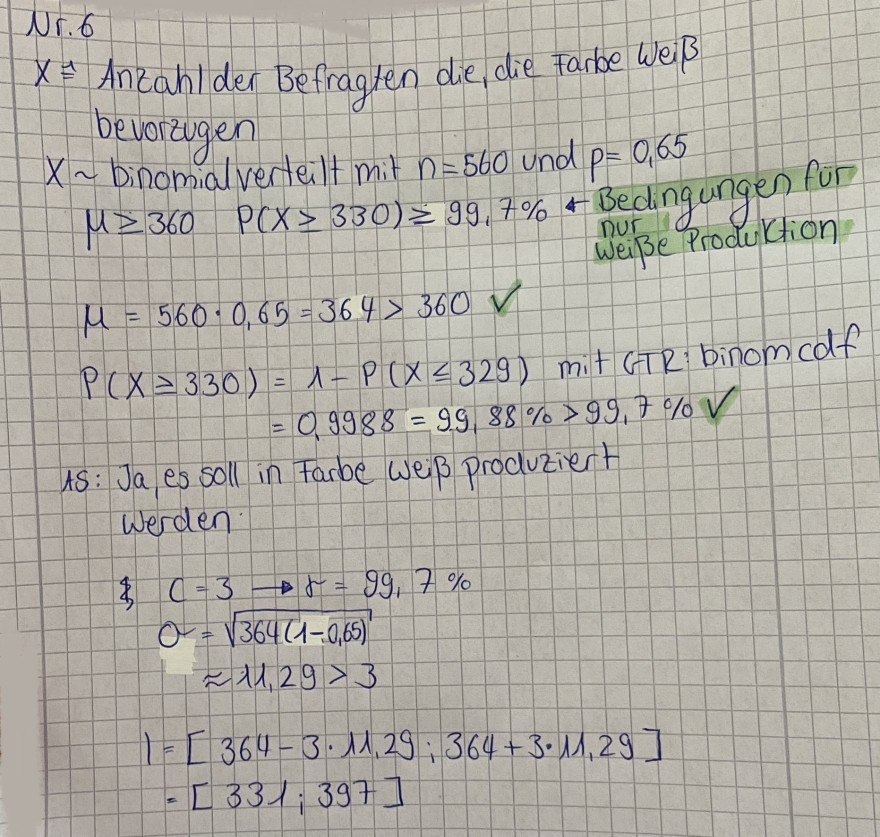 Nr. 6
X ≙ Anzahl der Befragten die, die Farbe Weiß
bevorzugen
X ~ binomialverteilt mit n=560 und p= 0,65
μ ≥ 360 P(X ≥ 330) ≥ 99,7% ← Bedingungen für
nur
weiße Produktion
μ = 560 · 0,65 = 364 > 360 ✓
P(X ≥ 330) = 1 - P(X ≤ 329) mit GTR: binomcdf
= 0,9988 = 99,88% > 99,7% ✓
AS: Ja, es soll in Farbe weiß produziert
werden.
C = 3 → γ = 99,7%
σ = √364(1-0,65)
≈ 11,29 > 3
I = [ 364 - 3 · 11,29 ; 364 + 3 · 11,29 ]
= [ 331 ; 397 ]